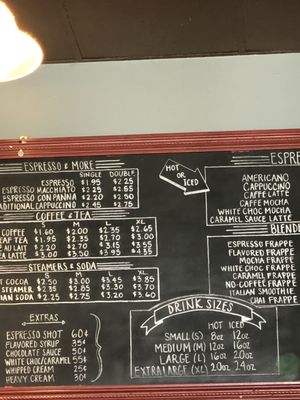 ESPRESSO & MORE
SINGLE DOUBLE
ESPRESSO $1.95 $2.25
ESPRESSO MACCHIATO $2.25 $2.55
ESPRESSO CON PANNA $2.20 $2.50
ADITIONAL CAPPUCCINO $2.45 $2.75
COFFEE & TEA
S M L XL
COFFEE $1.60 $2.00 $2.35 $2.65
EAF TEA $1.95 $2.35 $2.70 $3.00
AU LAIT $2.20 $2.70 $3.15 $3.55
LATTE $3.00 $3.50 $3.95 $4.35
STEAMERS & SODA
S M L XL
OT COCOA $2.50 $3.00 $3.45 $3.85
STEAMER $2.85 $3.30 $3.70
IAN SODA $2.25 $2.75 $3.20 $3.60
EXTRAS
ESPRESSO SHOT 60¢
FLAVORED SYRUP 35¢
CHOCOLATE SAUCE 50¢
WHITE CHOC/CARAMEL 55¢
WHIPPED CREAM 25¢
HEAVY CREAM 30¢
HOT
OR
ICED
ESPRE
AMERICANO
CAPPUCCINO
CAFFE LATTE
CAFFE MOCHA
WHITE CHOC MOCHA
CARAMEL SAUCE LATTE
BLENDE
ESPRESSO FRAPPE
FLAVORED FRAPPE
MOCHA FRAPPE
WHITE CHOC FRAPPE
CARAMEL FRAPPE
NO-COFFEE FRAPPE
ITALIAN SMOOTHIE
CHAI FRAPPE
DRINK SIZES
HOT ICED
SMALL (S) 8oz 12oz
MEDIUM (M) 12oz 16oz
LARGE (L) 16oz 20oz
EXTRA LARGE (XL) 20oz 24oz